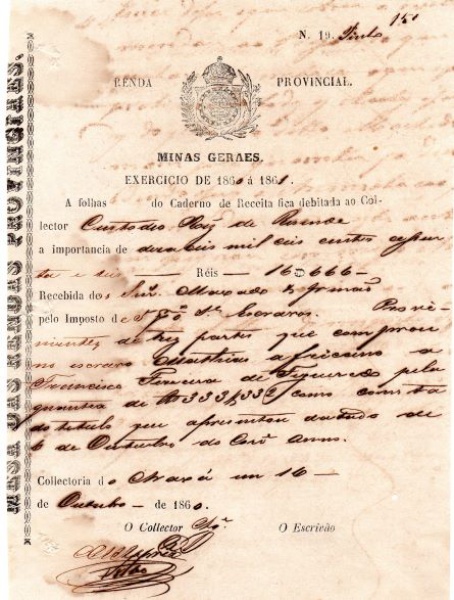 150
N. 19. Pinto
RENDA PROVINCIAL.
MINAS GERAES.
EXERCICIO DE 1860 á 1861.
A folhas do Caderno de Receita fica debitada ao Col-
lector Custodio Roiz de Resende
a importancia de dezaseis mil seis centos e sessen
ta e seis — Réis — 16$666 —
Recebida dos Snr. Machado & Irmão
pelo Imposto de escravos. Provi
de tres partes que comprou
no escravo africano a
Francisco Ferreira de Figueredo pela
quantia de 333$333 como consta
do titulo que apresentou datado de
6 de Outubro do Corr. anno.
Collectoria do Araxá em 16 —
de Outubro — de 1860.
O Collector O Escrivão
Pinto
MESA DAS RENDAS PROVINCIAES.